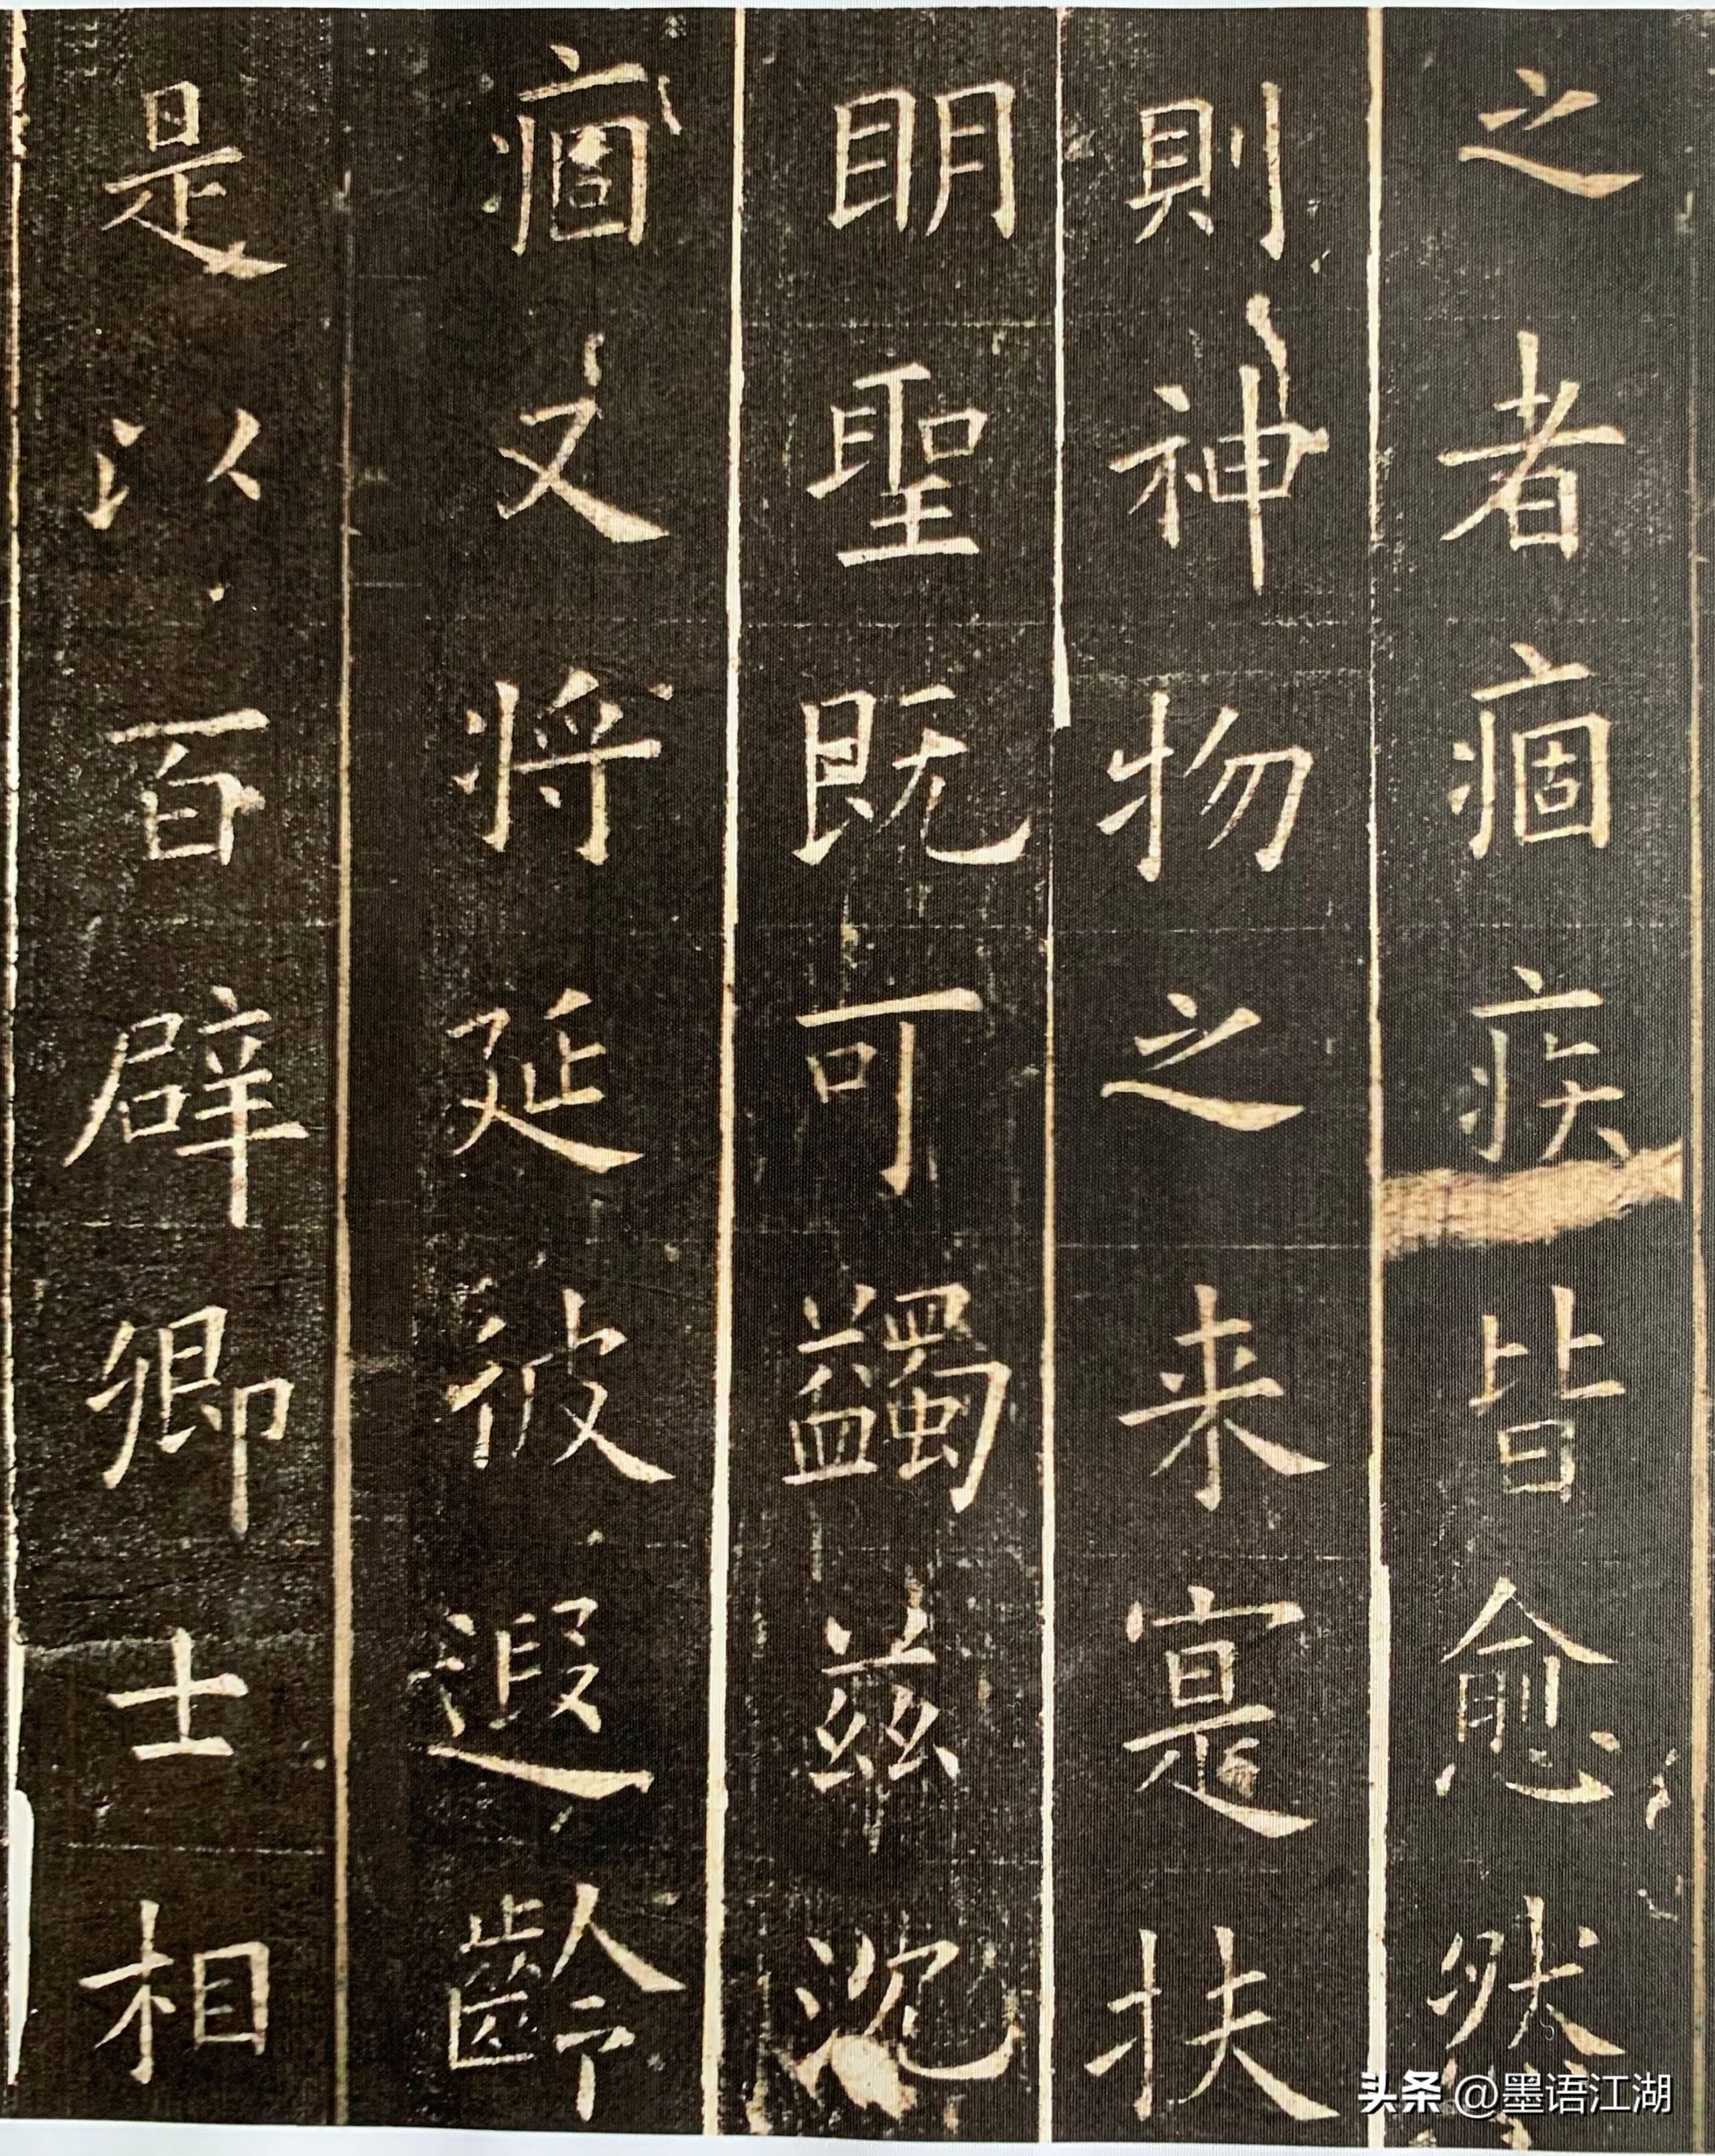 之者痼疾皆愈然
則神物之来寔扶
明聖既可蠲茲沉
痼又將延彼遐齡
是以百辟卿士相
头条 @墨语江湖